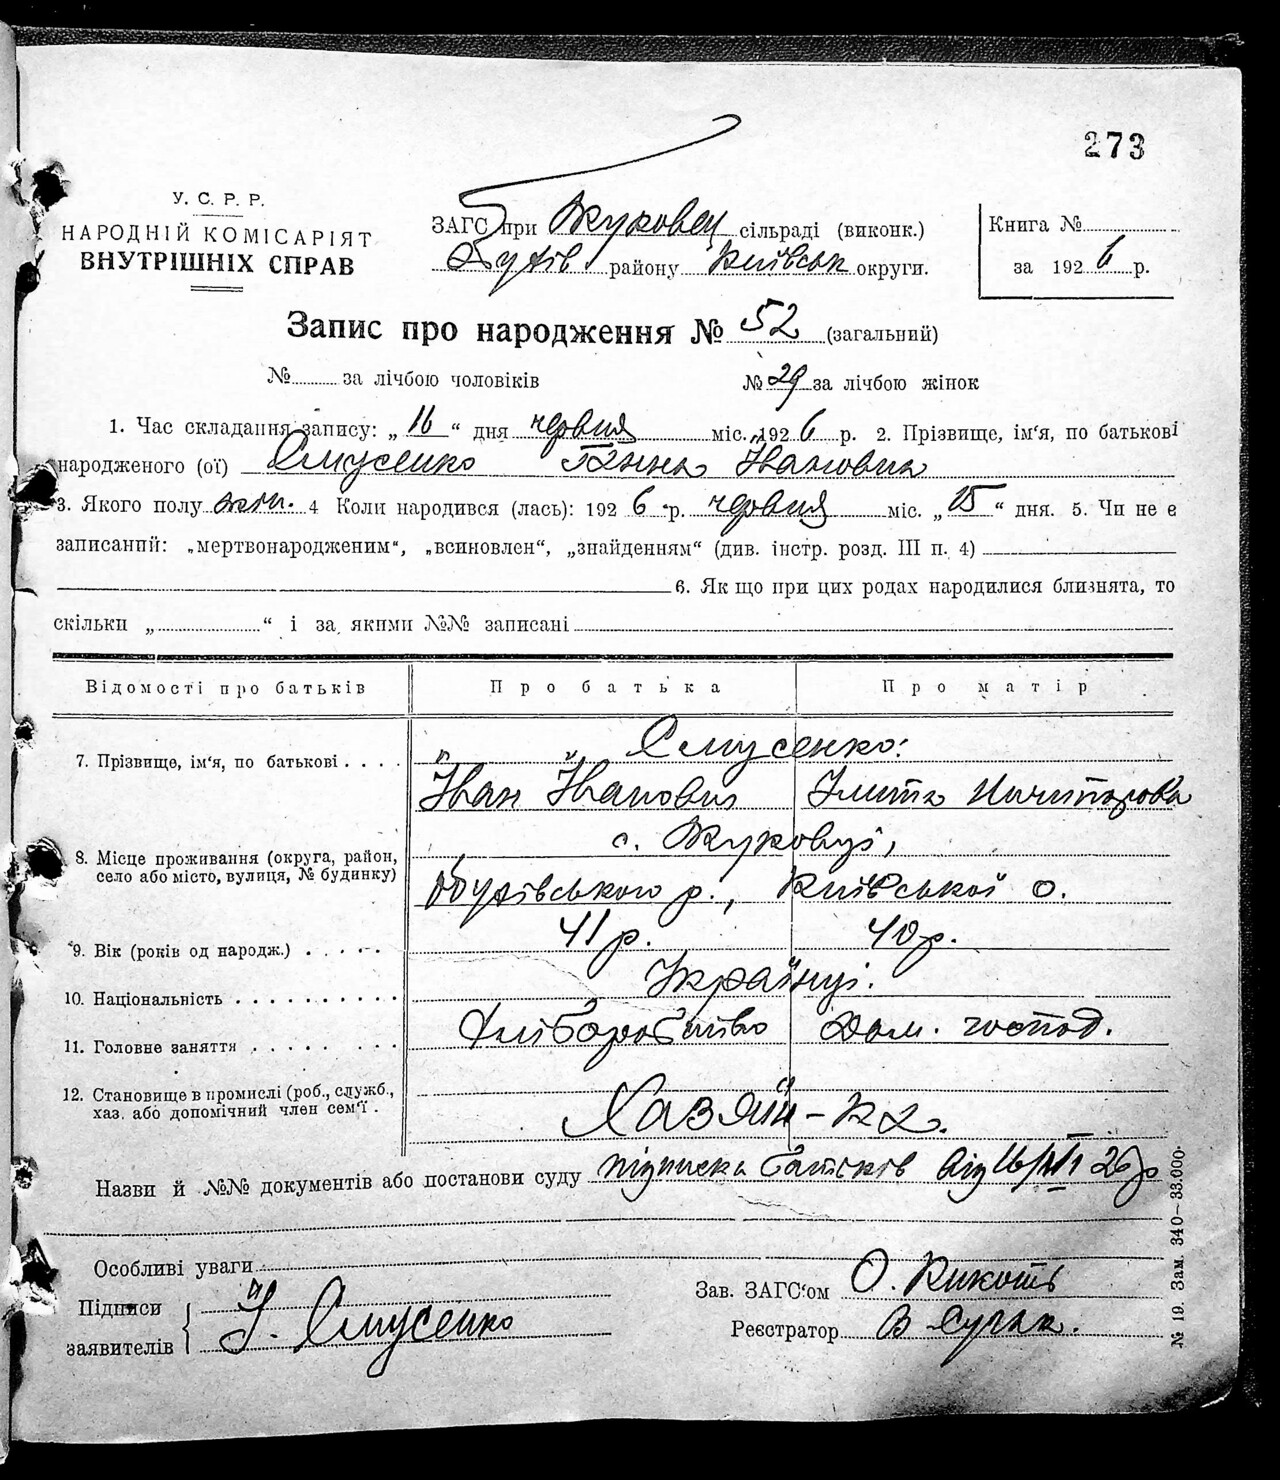 273
У. С. Р. Р.
НАРОДНІЙ КОМІСАРІЯТ
ВНУТРІШНІХ СПРАВ
ЗАГС при Жуковец сільраді (виконк.)
району Київськ округи.
Книга №
за 1926 р.
Запис про народження № 52 (загальний)
№ за лічбою чоловіків № 29 за лічбою жінок
1. Час складання запису: „16“ дня червня міс. 1926 р. 2. Прізвище, ім‘я, по батькові
народженого (ої) Смусенко Ганна Івановна
3. Якого полу жін. 4 Коли народився (лась): 1926 р. червня міс. „15“ дня. 5. Чи не є
записаний: „мертвонародженим“, „всиновлен“, „знайденням“ (див. інстр. розд. III п. 4)
6. Як що при цих родах народилися близнята, то
скільки „ “ і за якими №№ записані
Відомості про батьків Про батька Про матір
7. Прізвище, ім‘я, по батькові Смусенко:
Іван Іванович
8. Місце проживання (округа, район, село або місто, вулиця, № будинку) с. Жуковці,
Обухівського р., Київської о.
9. Вік (років од народж.) 41 р. 40 р.
10. Національність Українці.
11. Головне заняття Хліборобство Дом. господ.
12. Становище в промислі (роб., служб., хаз. або допомічний член сем‘ї. Хазяїн-ка.
Назви й №№ документів або постанови суду підписка батьків від 16/VI 26 р
Особливі уваги
Підписи
заявителів І. Смусенко
Зав. ЗАГС‘ом О.
Реєстратор В
№ 19. Зам. 340—33.000.